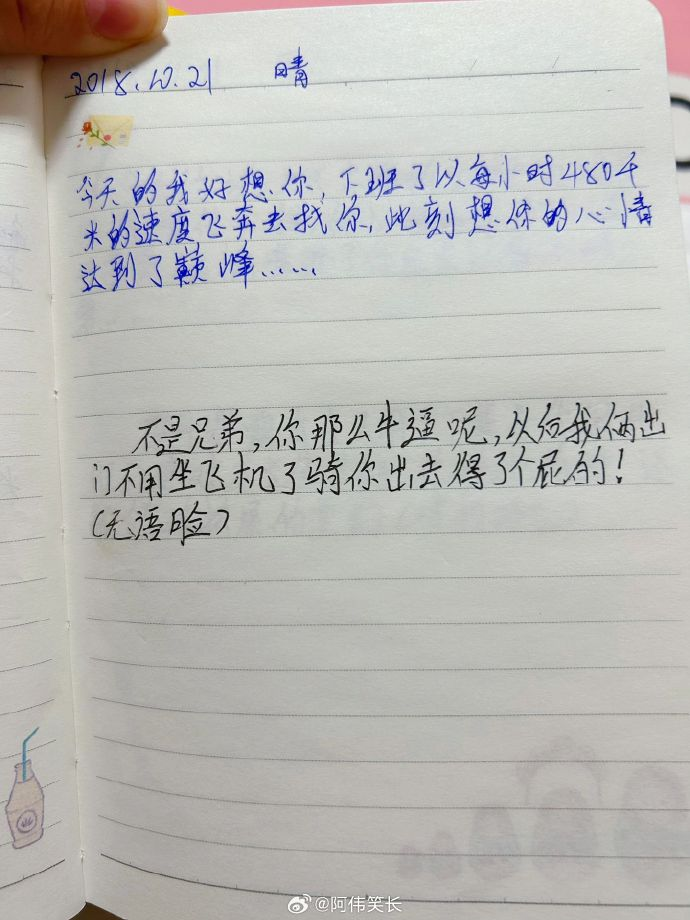 2018.10.21 晴
今天的我好想你，下班了以每小时480千
米的速度飞奔去找你，此刻想你的心情
达到了巅峰……
不是兄弟，你那么牛逼呢，以后我俩出
门不用坐飞机了骑你出去得了个屁的！
（无语脸）
@阿伟笑长